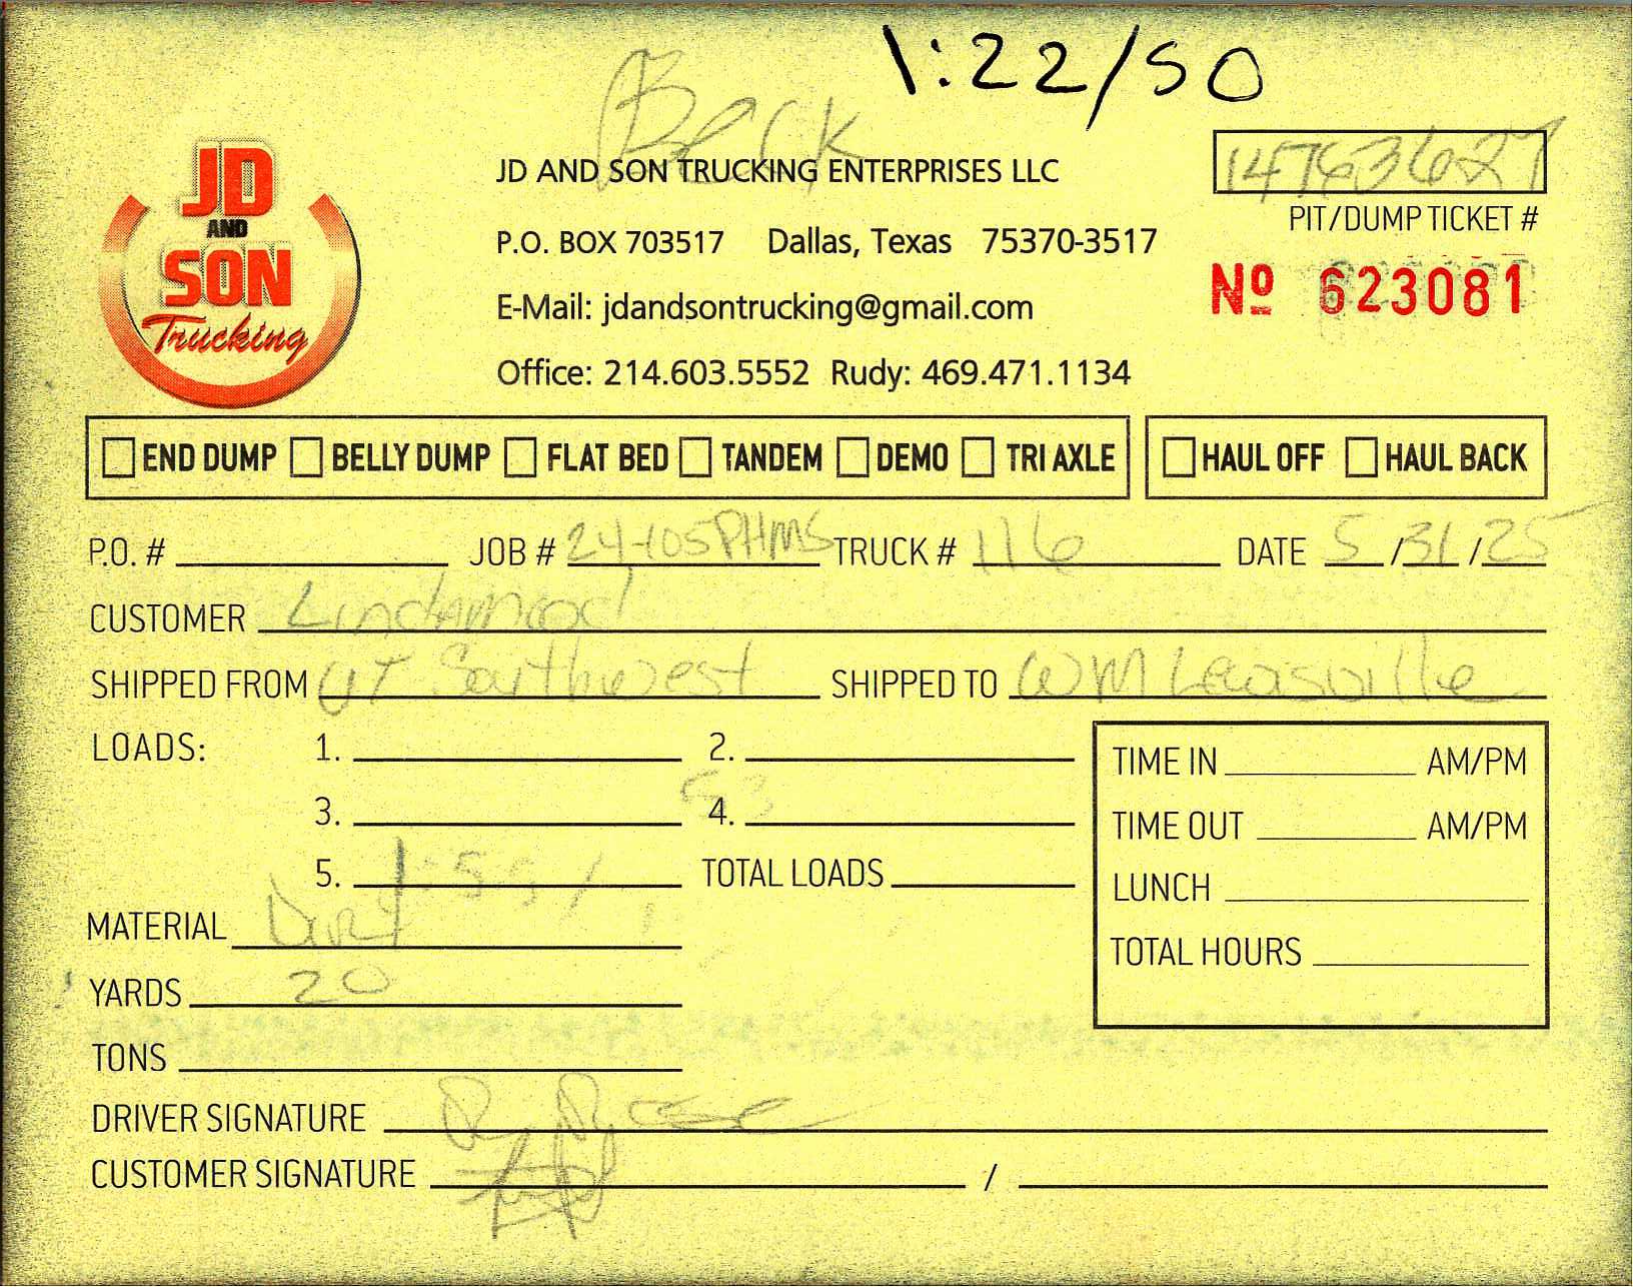 1:22/50
Beck
JD AND SON Trucking
JD AND SON TRUCKING ENTERPRISES LLC
P.O. BOX 703517 Dallas, Texas 75370-3517
E-Mail: jdandsontrucking@gmail.com
Office: 214.603.5552 Rudy: 469.471.1134
14763627
PIT/DUMP TICKET #
Nº 623081
END DUMP BELLY DUMP FLAT BED TANDEM DEMO TRI AXLE HAUL OFF HAUL BACK
P.O. # JOB # 24-105PHMS TRUCK # 116 DATE 5/31/25
CUSTOMER Lindamood
SHIPPED FROM UT Southwest SHIPPED TO WM Lewisville
LOADS: 1. 2.
3. 4. 53
5. TOTAL LOADS
MATERIAL Dirt
YARDS 20
TONS
DRIVER SIGNATURE
CUSTOMER SIGNATURE /
TIME IN AM/PM
TIME OUT AM/PM
LUNCH
TOTAL HOURS